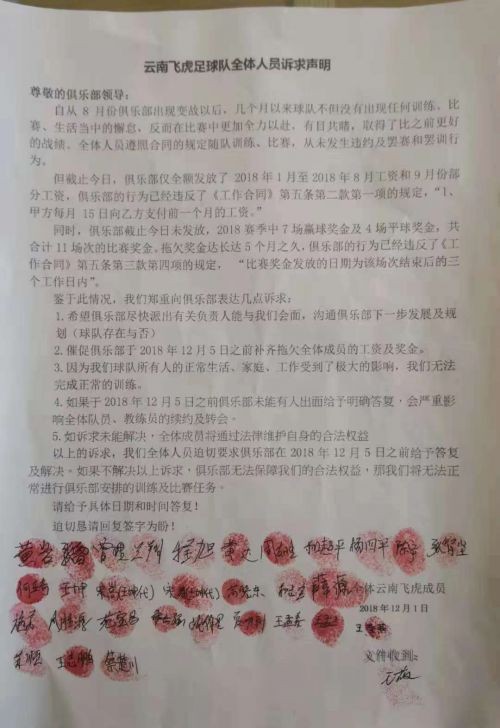 云南飞虎足球队全体人员诉求声明
尊敬的俱乐部领导：
自从 8 月份俱乐部出现变故以后，几个月以来球队不但没有出现任何训练、比
赛、生活当中的懈怠，反而在比赛中更加全力以赴，有目共睹，取得了比之前更好
的战绩。全体人员遵照合同的规定随队训练、比赛，从未发生违约及罢赛和罢训行
为。
但截止今日，俱乐部仅全额发放了 2018 年 1 月至 2018 年 8 月工资和 9 月份部
分工资，俱乐部的行为已经违反了《工作合同》第五条第二款第一项的规定，“1、
甲方每月 15 日向乙方支付前一个月的工资。”
同时，俱乐部截止今日未发放，2018 赛季中 7 场赢球奖金及 4 场平球奖金，共
合计 11 场次的比赛奖金。拖欠奖金达长达 5 个月之久，俱乐部的行为已经违反了《工
作合同》第五条第三款第四项的规定， “比赛奖金发放的日期为该场次结束后的三
个工作日内”。
鉴于此情况，我们郑重向俱乐部表达几点诉求：
1.希望俱乐部尽快派出有关负责人能与我们会面，沟通俱乐部下一步发展及规
划（球队存在与否）
2.催促俱乐部于 2018 年 12 月 5 日之前补齐拖欠全体成员的工资及奖金。
3.因为我们球队所有人的正常生活、家庭、工作受到了极大的影响，我们无法
完成正常的训练。
4.如果于 2018 年 12 月 5 日之前俱乐部未能有人出面给予明确答复，会严重影
响全体队员、教练员的续约及转会。
5.如诉求未能解决，全体成员将通过法律维护自身的合法权益
以上的诉求，我们全体人员迫切要求俱乐部在 2018 年 12 月 5 日之前给予答复
及解决。如果不解决以上诉求，俱乐部无法保障我们的合法权益，那我们将无法正
常进行俱乐部安排的训练及比赛任务。
请给予具体日期和时间答复！
迫切恳请回复签字为盼！
全体云南飞虎成员
2018 年 12 月 1 日
文件收到：